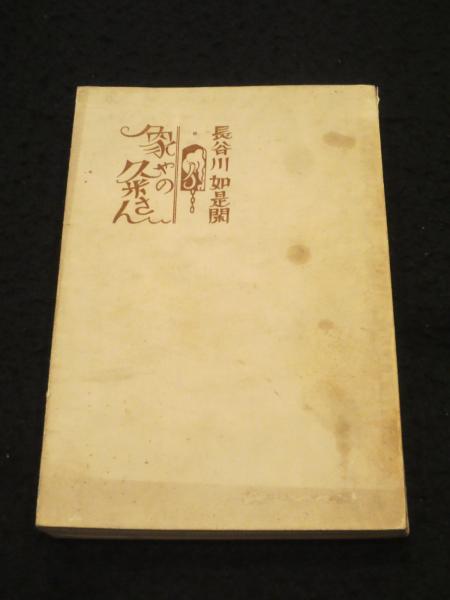 長谷川 如是閑
象やの
粂さん